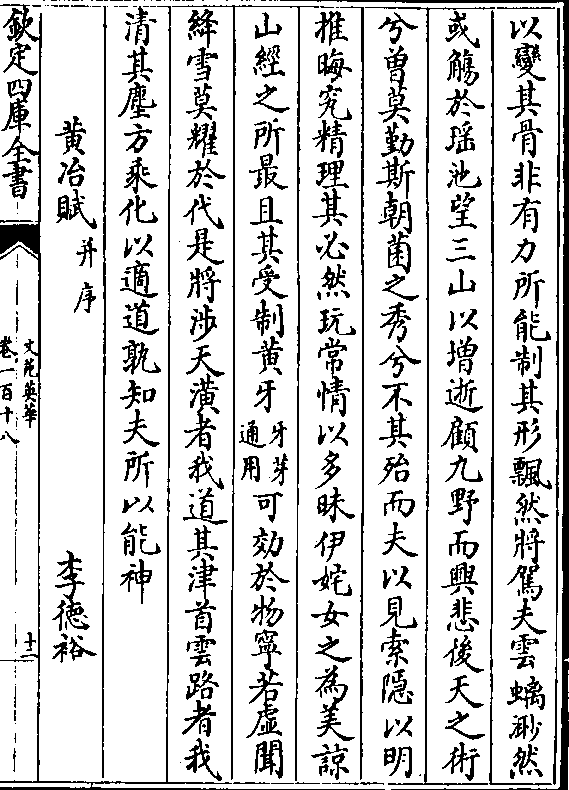 以變其骨非有力所能制其形飄然將駕夫雲螭砂然
或觴於瑶池望三山以增逝顧九野而興悲後天之術
兮曽莫勤斯朝菌之秀兮不其殆而夫以見索隠以明
推晦究精理其必然玩常情以多昧伊姹女之為美諒
山經之所最且其受制黄牙牙芽通用可効於物寧若虚聞
絳雪莫耀於代是將涉天潢者我道其津首雲路者我
清其塵方乘化以適道孰知夫所以能神
黄冶賦并序 李德裕
欽定四庫全書
文苑英華
卷一百十八
十二